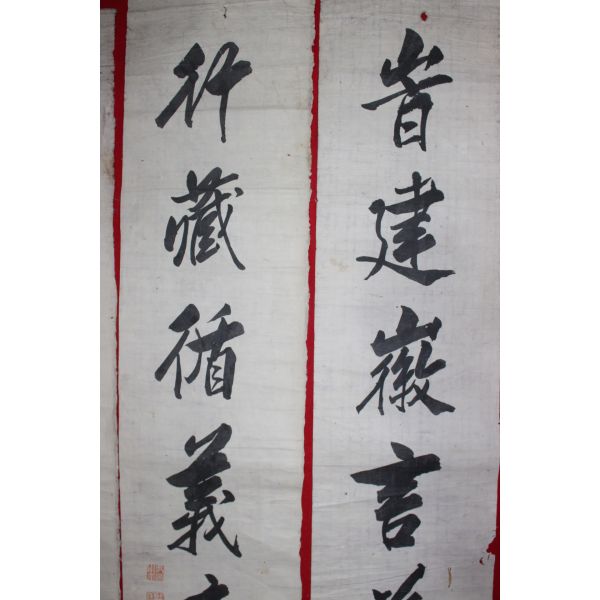 旹建徽言
行藏循義